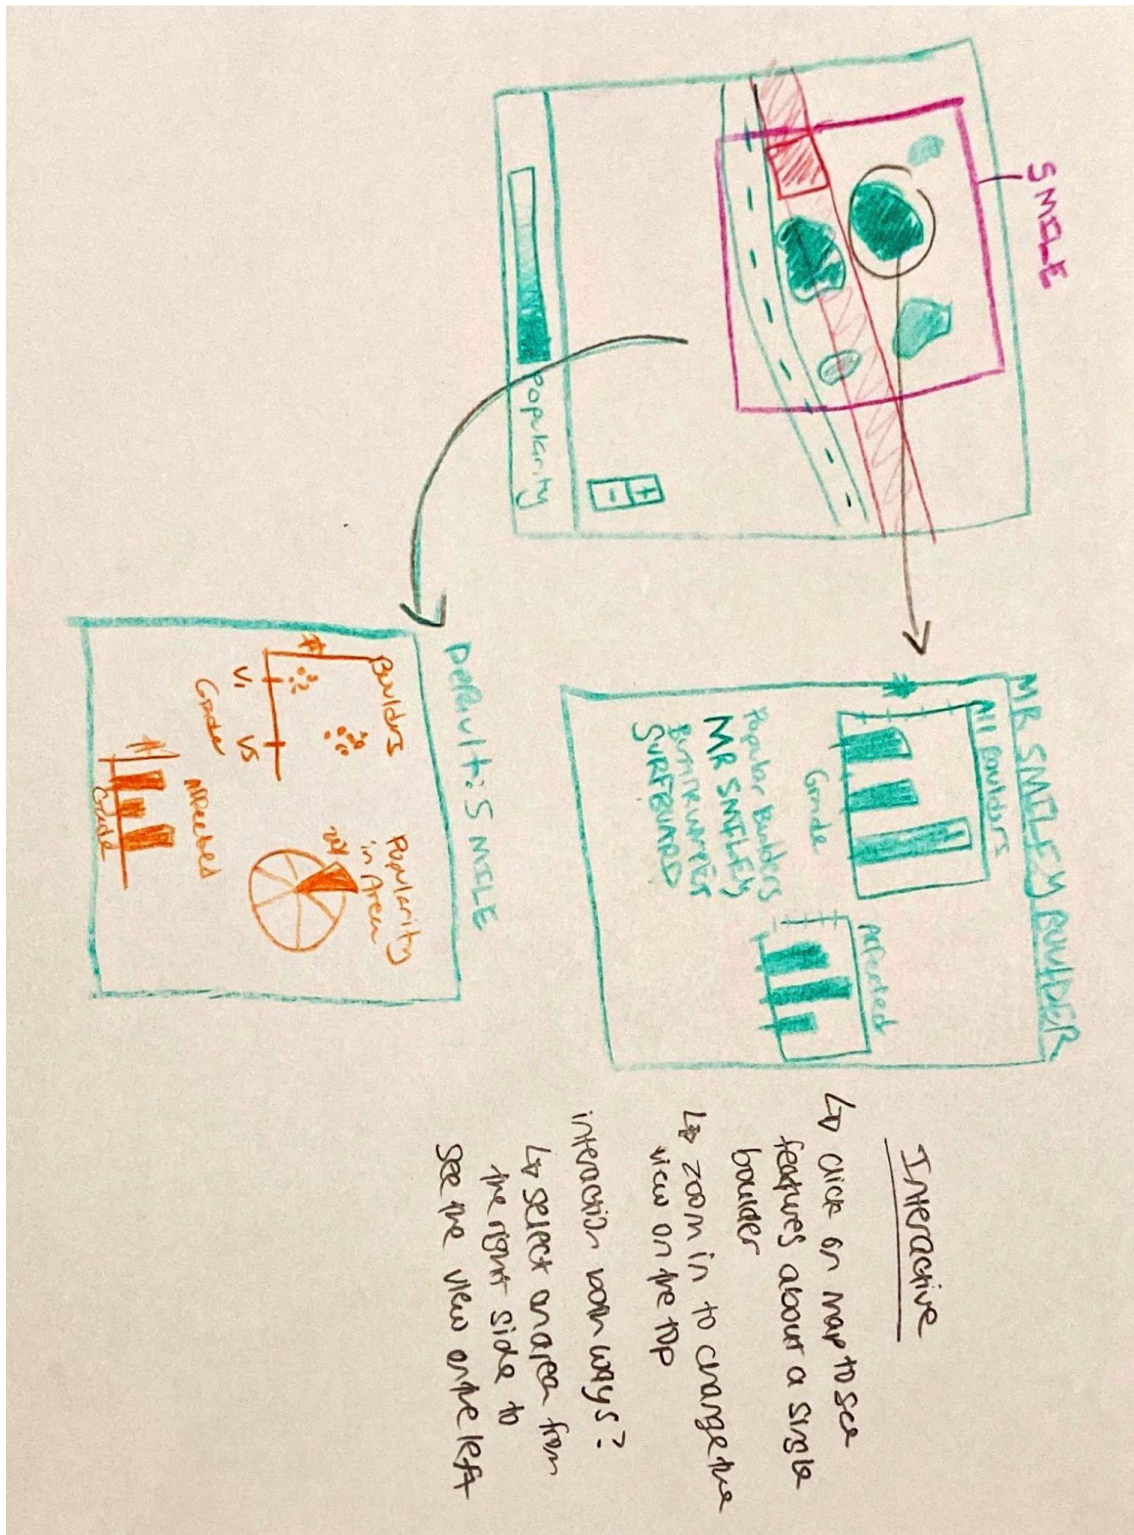 SMILE
Popularity
+
-
MR SMILEY BOULDER
All Boulders
#
Grade
Affected
Popular Boulders
MR SMILEY
BUTTKUMPER
SURFBOARD
DEFAULT: SMILE
Boulders
#
V1
V5
Grade
Popularity
in Area
Affected
#
Grade
Interactive
↳ click on map to see
features about a single
boulder
↳ zoom in to change the
view on the top
interaction both ways?
↳ select an area from
the right side to
see the view on the left